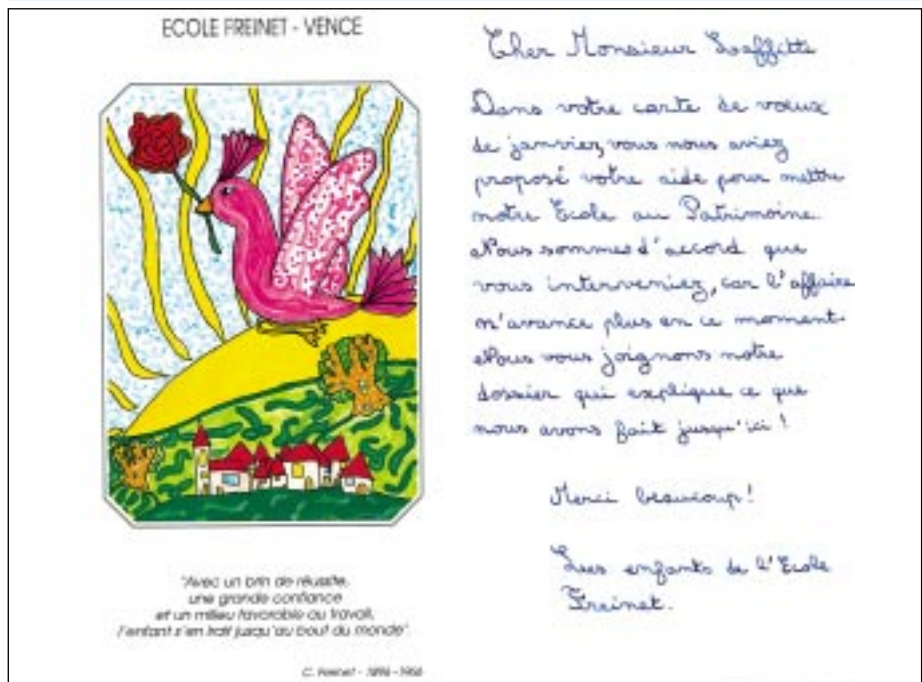 ECOLE FREINET - VENCE
"Avec un brin de réussite,
une grande confiance
et un milieu favorable au travail,
l'enfant s'en irait jusqu'au bout du monde".
C. Freinet - 1896-1966
Cher Monsieur Laffitte
Dans votre carte de vœux
de janvier, vous nous aviez
proposé votre aide pour mettre
notre Ecole au Patrimoine.
Nous sommes d'accord que
vous interveniez, car l'affaire
n'avance plus en ce moment.
Nous vous joignons notre
dossier qui explique ce que
nous avons fait jusqu'ici !
Merci beaucoup !
Les enfants de l'Ecole
Freinet.